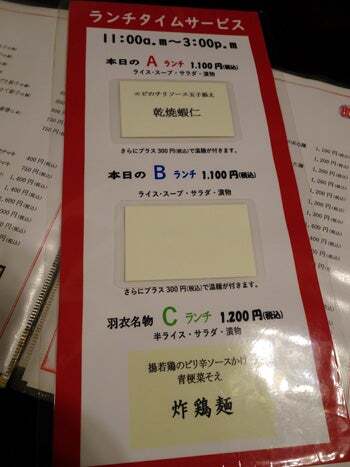 ランチタイムサービス
11:00a.m〜3:00p.m
本日の A ランチ 1.100円(税込)
ライス・スープ・サラダ・漬物
エビのチリソース玉子添え
乾焼蝦仁
さらにプラス300円(税込)で温麺が付きます。
本日の B ランチ 1.100円(税込)
ライス・スープ・サラダ・漬物
さらにプラス300円(税込)で温麺が付きます。
羽衣名物 C ランチ 1.200円(税込)
半ライス・サラダ・漬物
揚若鶏のピリ辛ソースかけ
青梗菜そえ
炸鶏麺